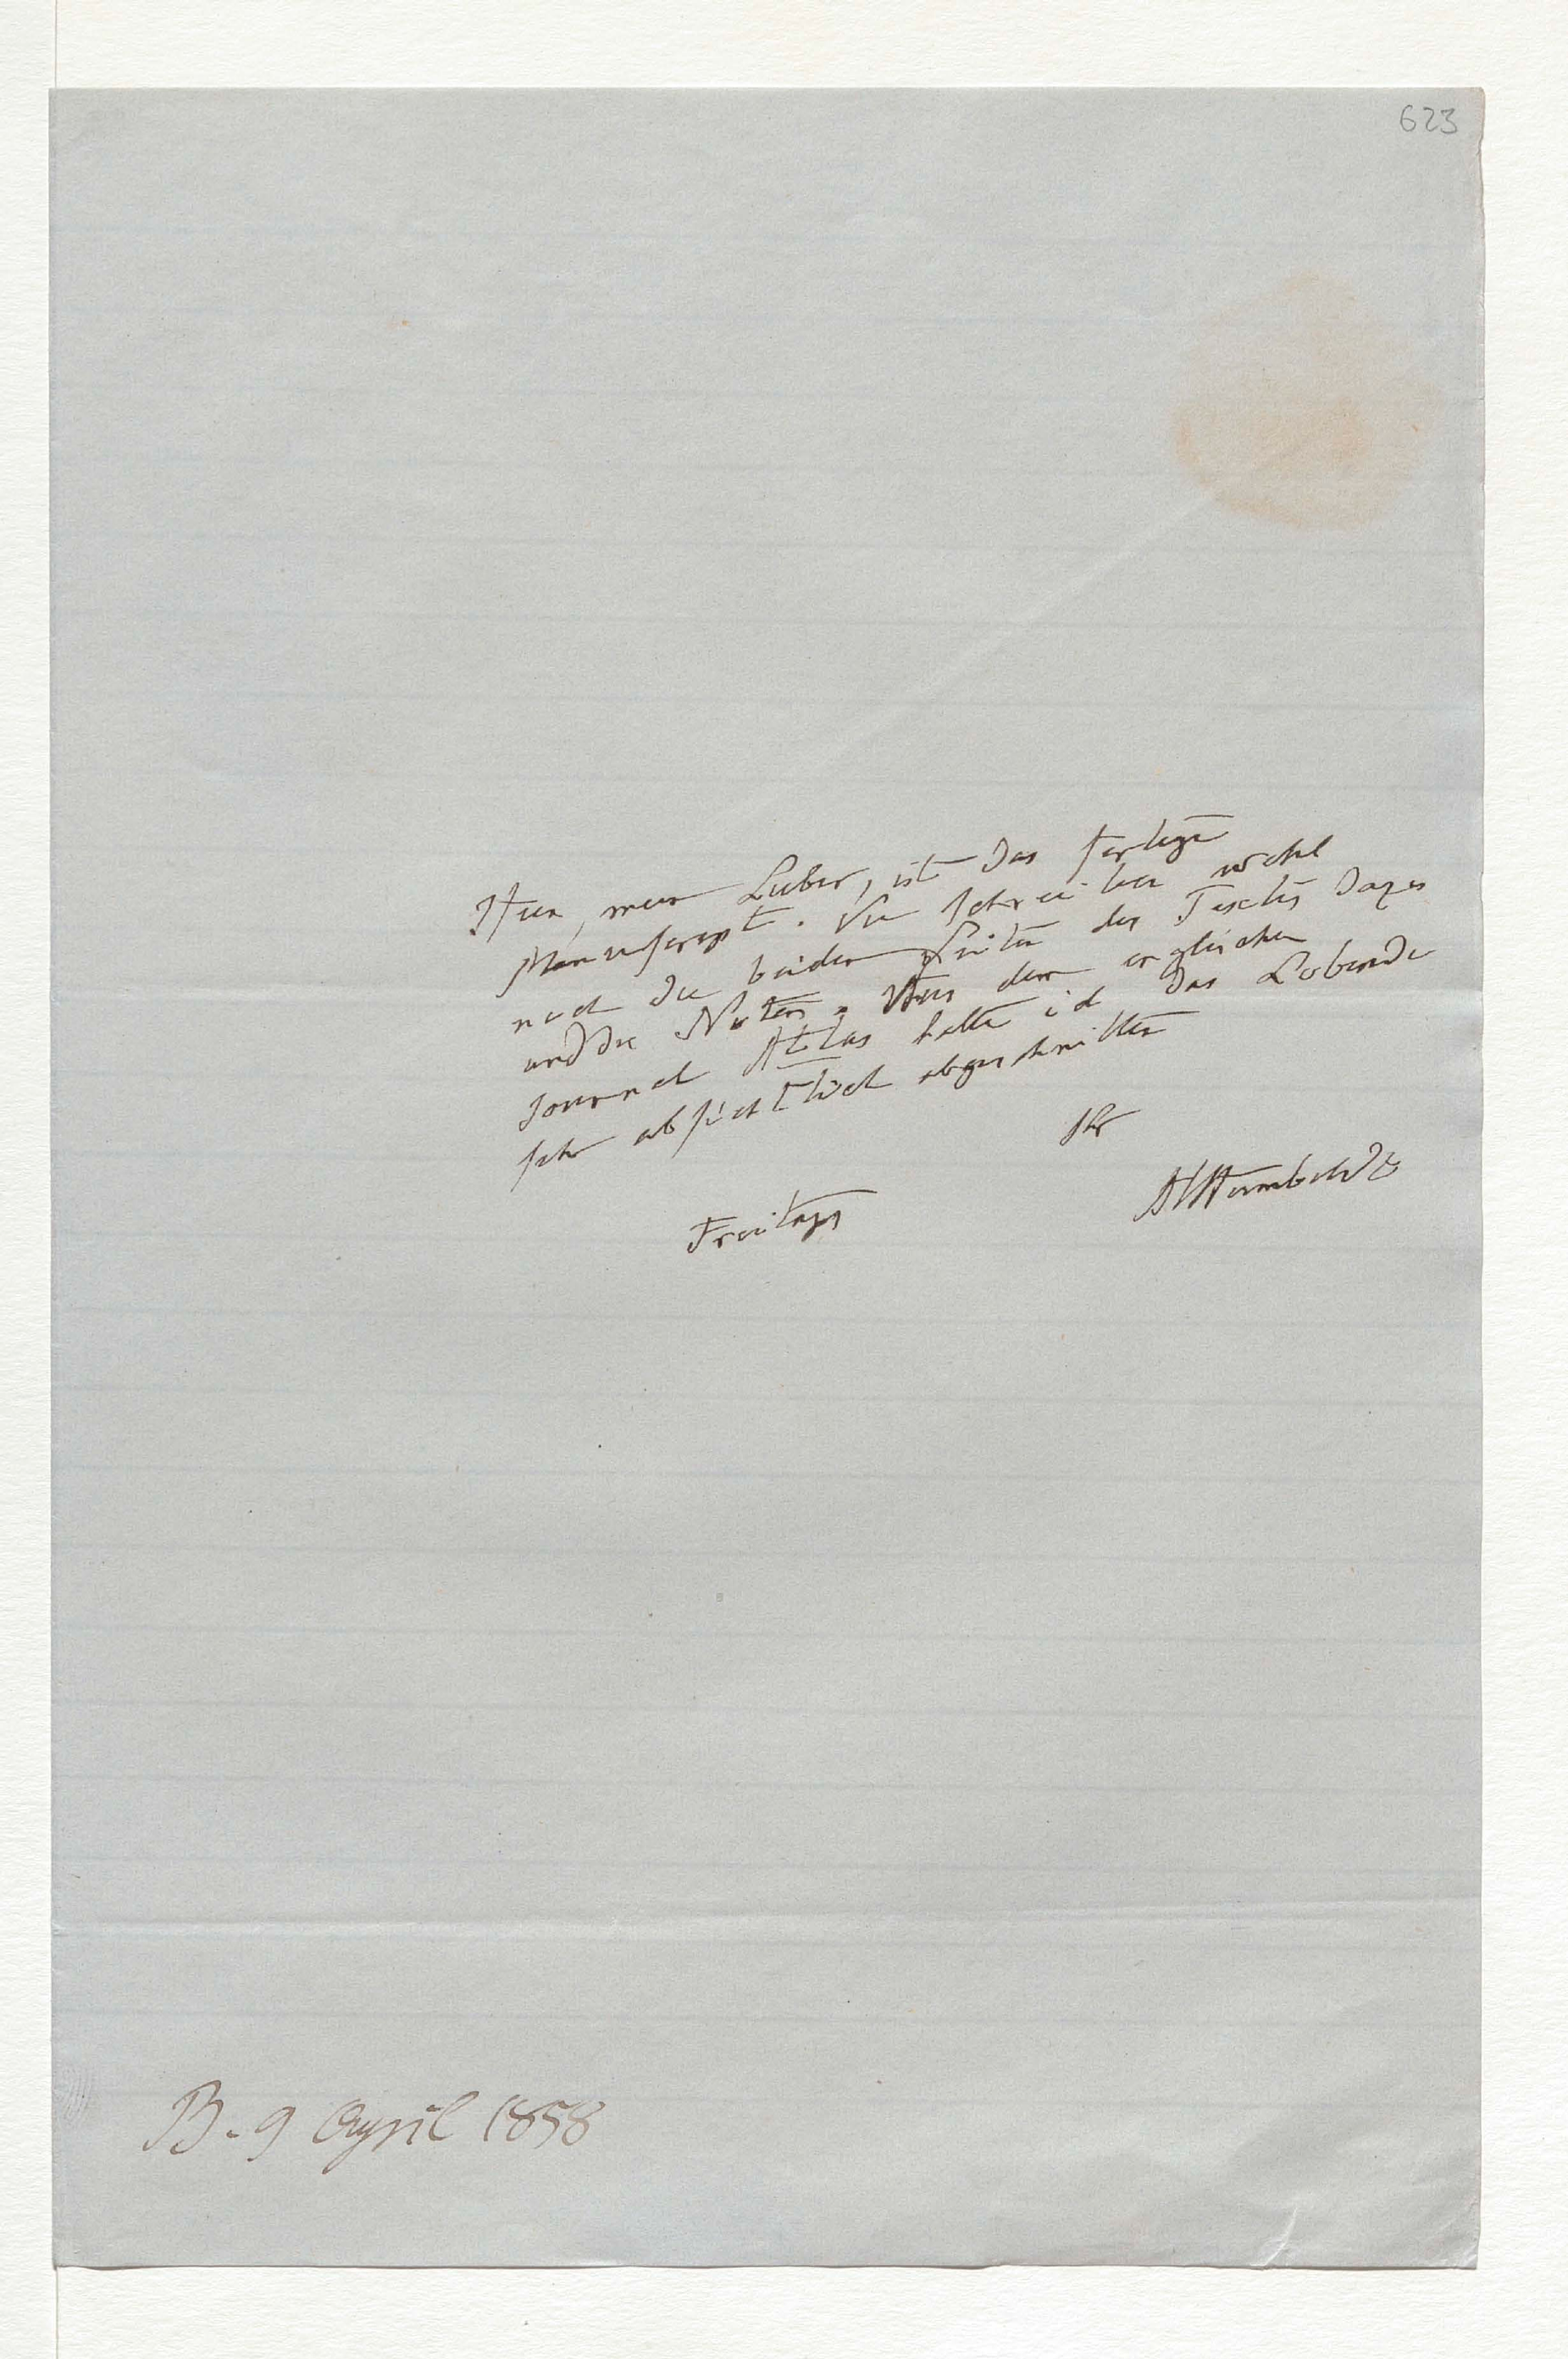 623
Hier, mein Lieber, ist das fertige
Manuscript. Sie schreiben wohl
noch die beiden Seiten des Textes dazu
und die Noten. Aus dem englischen
Journal Atlas hatte ich das Lobende
sehr absichtlich abgeschnitten
Ihr
AlHumboldt
Freitags
B. 9 April 1858